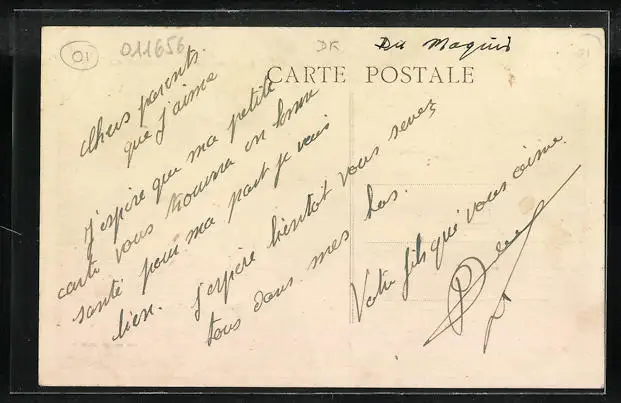 01
011656
DR
Du Maquis
CARTE POSTALE
Chers parents
que j'aime
J'espire que ma petite
carte vous trouvera en bonne
santé pour ma part je vais
bien. J'espère bientôt vous serrez
tous dans mes bas.
Votre fils qui vous aime.